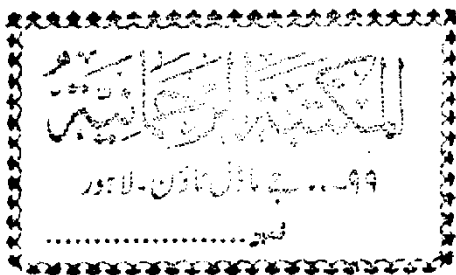 المكتبة الرحمانية
۹۹... جے ماڈل ٹاؤن ۔ لاہور
نمبر..............................